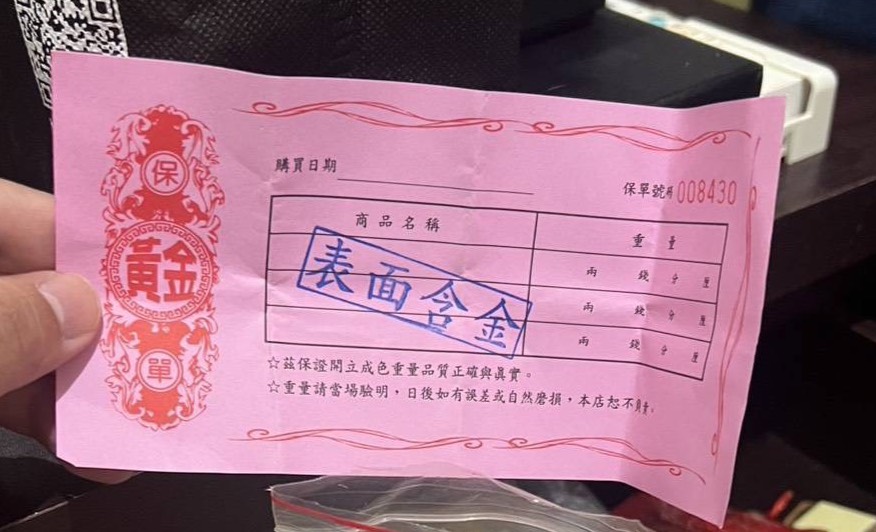 保
黃金
單
購買日期
保單號碼 008430
商品名稱 重量
兩 錢 分 厘
兩 錢 分 厘
兩 錢 分 厘
表面含金
☆茲保證開立成色重量品質正確與真實。
☆重量請當場驗明，日後如有誤差或自然磨損，本店恕不負責。